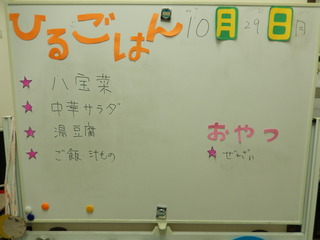 ひるごはん 10月29日月
八宝菜
中華サラダ
湯豆腐
ご飯 汁もの
おやつ
ぜんざい